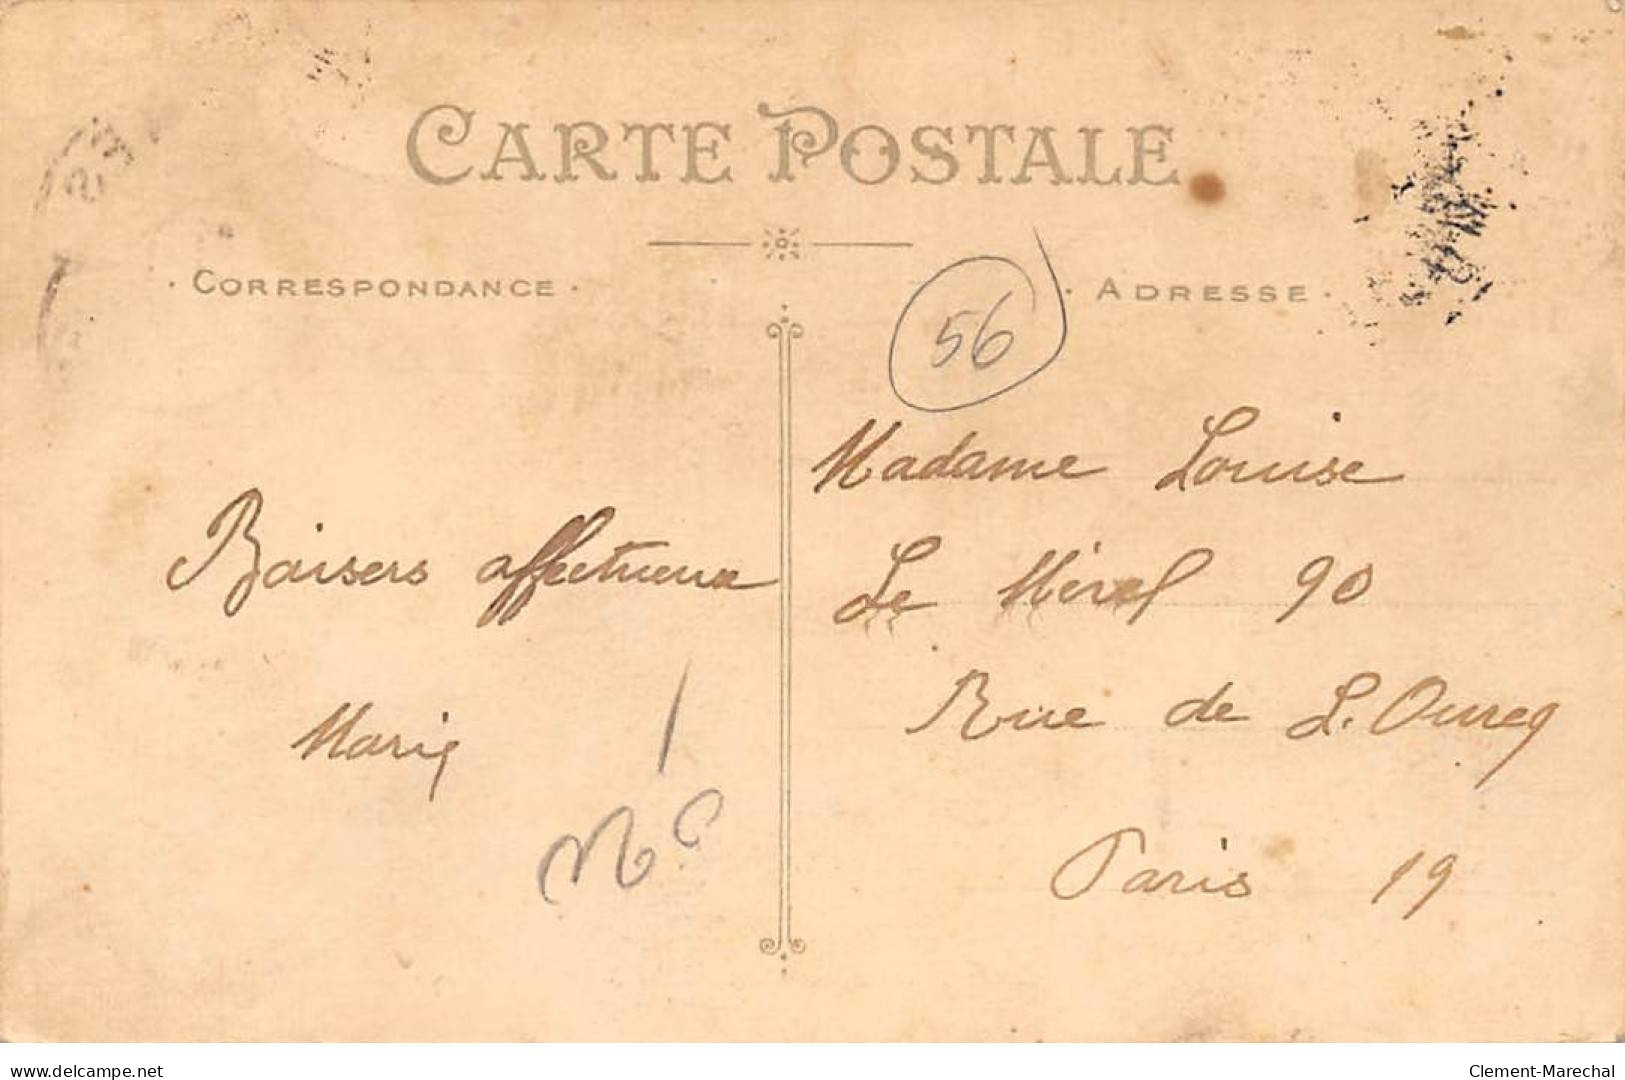 CARTE POSTALE
· CORRESPONDANCE ·
· ADRESSE ·
56
Madame Louise
Le Mével 90
Rue de L. Ourcq
Paris 19
Baisers affectueux
Marie
delcampe.net
Clement-Marechal